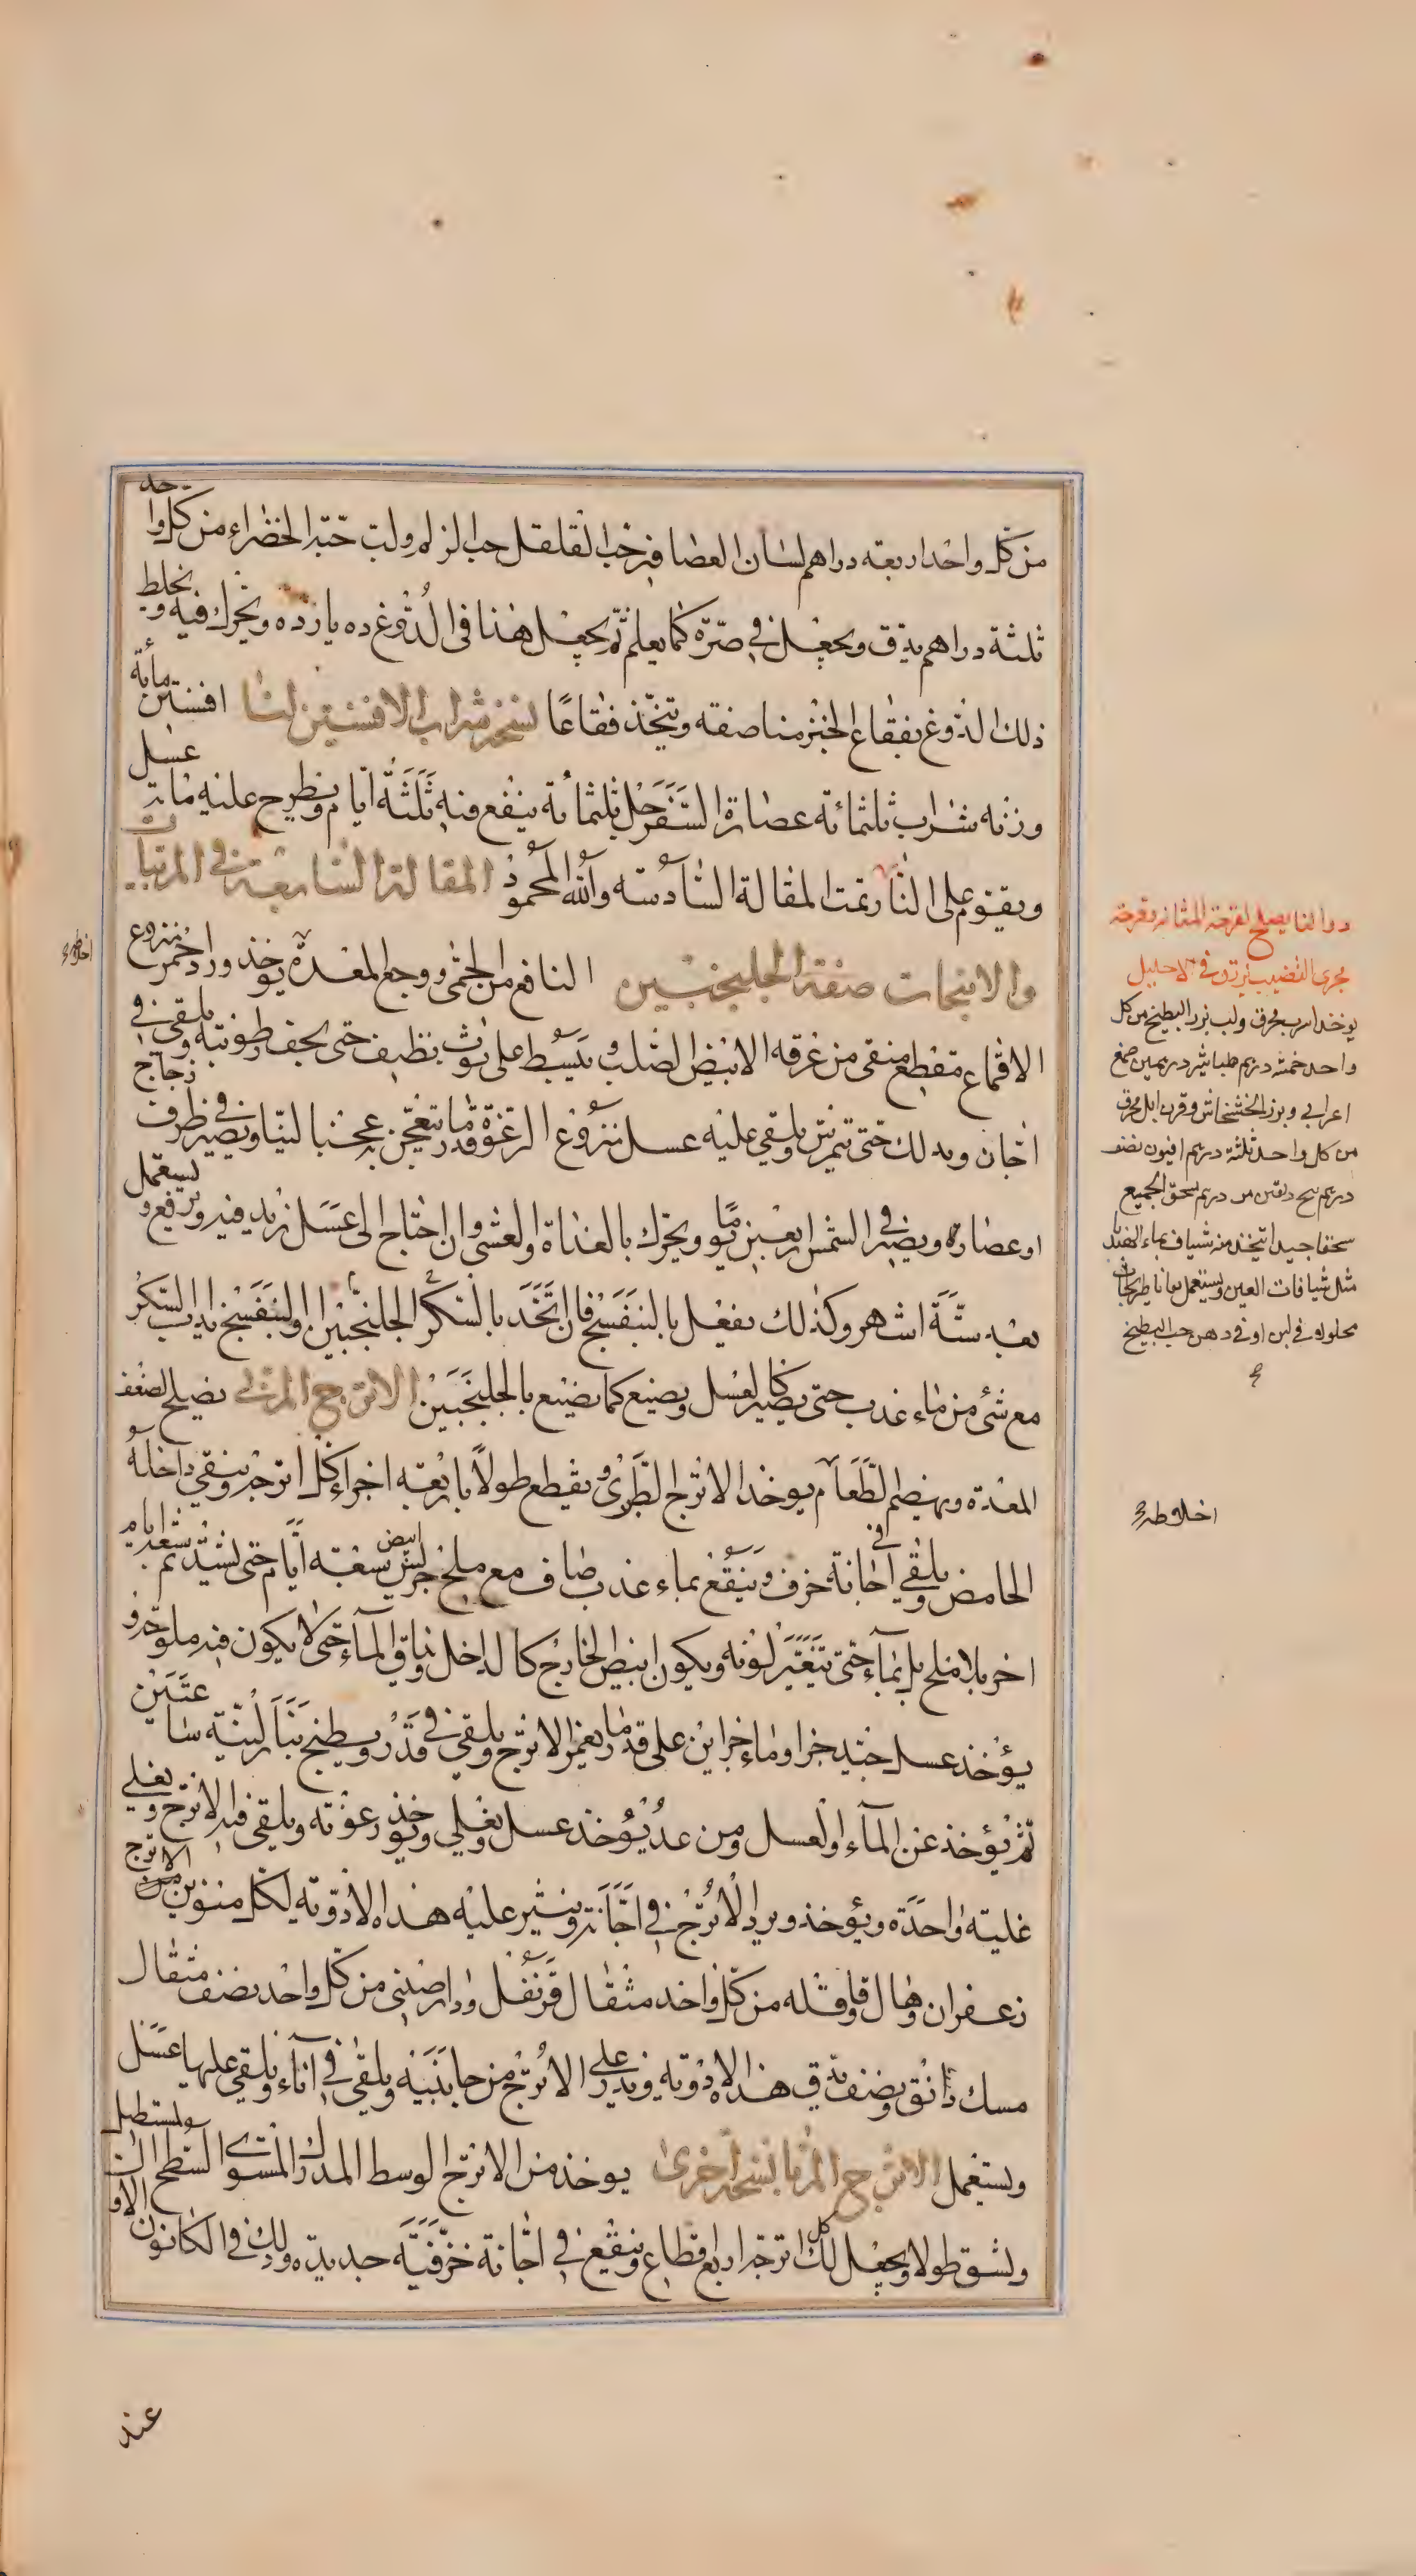 من كل واحد اربعة دراهم لسان العصافير حب القلقل حب الزلم ولب حبة الخضراء من كل واحد
ثلثة دراهم يدق ويجعل في صرة كما يعلم ثم يجعل هذا في الدوغ ده يازده ويحرك فيه ويخلط
ذلك الدوغ بفقاع الخبز مناصفة ويتخذ فقاعا نسخة شراب الافسنتين لنا افسنتين مأية
وزنه شراب ثلثمائة عصارة السفرجل ثلثمائة ينقع فيه ثلثة ايام ويطرح عليه عسل مأتين
ويقوم على النار تمت المقالة السادسة والله المحمود المقالة السابعة في المربيات
والانبجات صفة الجلنجبين النافع من الحمى ووجع المعدة يوخذ ورد احمر منزوع
الاقماع مقطع منقى من عرقه الابيض الصلب ويبسط على ثوب نظيف حتى يجف رطوبته ويلقى في
اجان ويدلك حتى يتمرس ويلقى عليه عسل منزوع الرغوة قدر ما تعجن به عجنا لينا ويصير في ظرف زجاج
او غضارة ويصير في الشمس اربعين يوما ويحرك بالغداة والعشي وان احتاج الى عسل زيد فيه ويرفع ويستعمل
بعد ستة اشهر وكذلك يفعل بالبنفسج فان اتخذ بالسكر الجلنجبين او البنفسج يداب السكر
مع شئ من ماء عذب حتى يصير كالعسل ويصنع كما يصنع بالجلنجبين الاترج المربى يصلح لضعف
المعدة ويهضم الطعام يوخذ الاترج الطري ويقطع طولا باربعة اجزاء كل اترجة وينقى داخله
الحامض ويلقى في اجانة خزف وينقع بماء عذب صاف مع ملح جريش ابيض سبعة ايام حتى يشتد ثم سبعة ايام
اخر بلا ملح بل بماء حتى يتغير لونه ويكون ابيض الخارج كالداخل وباقي الماء حتى لا يكون فيه ملوحة و
يؤخذ عسل جيد جزا وماء جزاين على قدر ما يغمر الاترج ويلقى في قدر ويطبخ بنار لينة ساعتين
ثم يؤخذ عن الماء والعسل ومن غد يؤخذ عسل ويغلي ويوخذ رغوته ويلقى فيه الاترج ويغلي
غلية واحدة ويؤخذ ويرد الاترج في اجانة وينثر عليه هذه الادوية لكل منوين من الاترج
زعفران وهال وقاقلة من كل واحد مثقال قرنفل ودارصيني من كل واحد نصف مثقال
مسك دانق ونصف يدق هذه الادوية ويذر على الاترج من جانبيه ويلقى في اناء ويلقى عليها عسل
ويستعمل الاترج المربا نسخة اخرى يوخذ من الاترج الوسط المدرك المستوي السطح المستطيل
ويشق طولا ويجعل لكل اترجة اربع قطاع وينقع في اجانة خزفية جديدة وذلك في الكانون الاو
عند
دوا لنا يصلح لقرحة المثانة وقرحة
مجرى القضيب يزرق في الاحليل
يوخذ اسرب محرق ولب بزر البطيخ من كل
واحد خمسة دريم طباشير دريمين صمغ
اعرابي وبزر الخشخاش وقرن ايل محرق
من كل واحد ثلثة دريم افيون نصف
دريم بنج دانقين من دريم يسحق الجميع
سحقا جيدا يتخذ منه شياف بماء الهندبا
مثل شيافات العين ويستعمل
محلوله في لبن او في دهن حب البطيخ
اخلاطه
اخلاطه